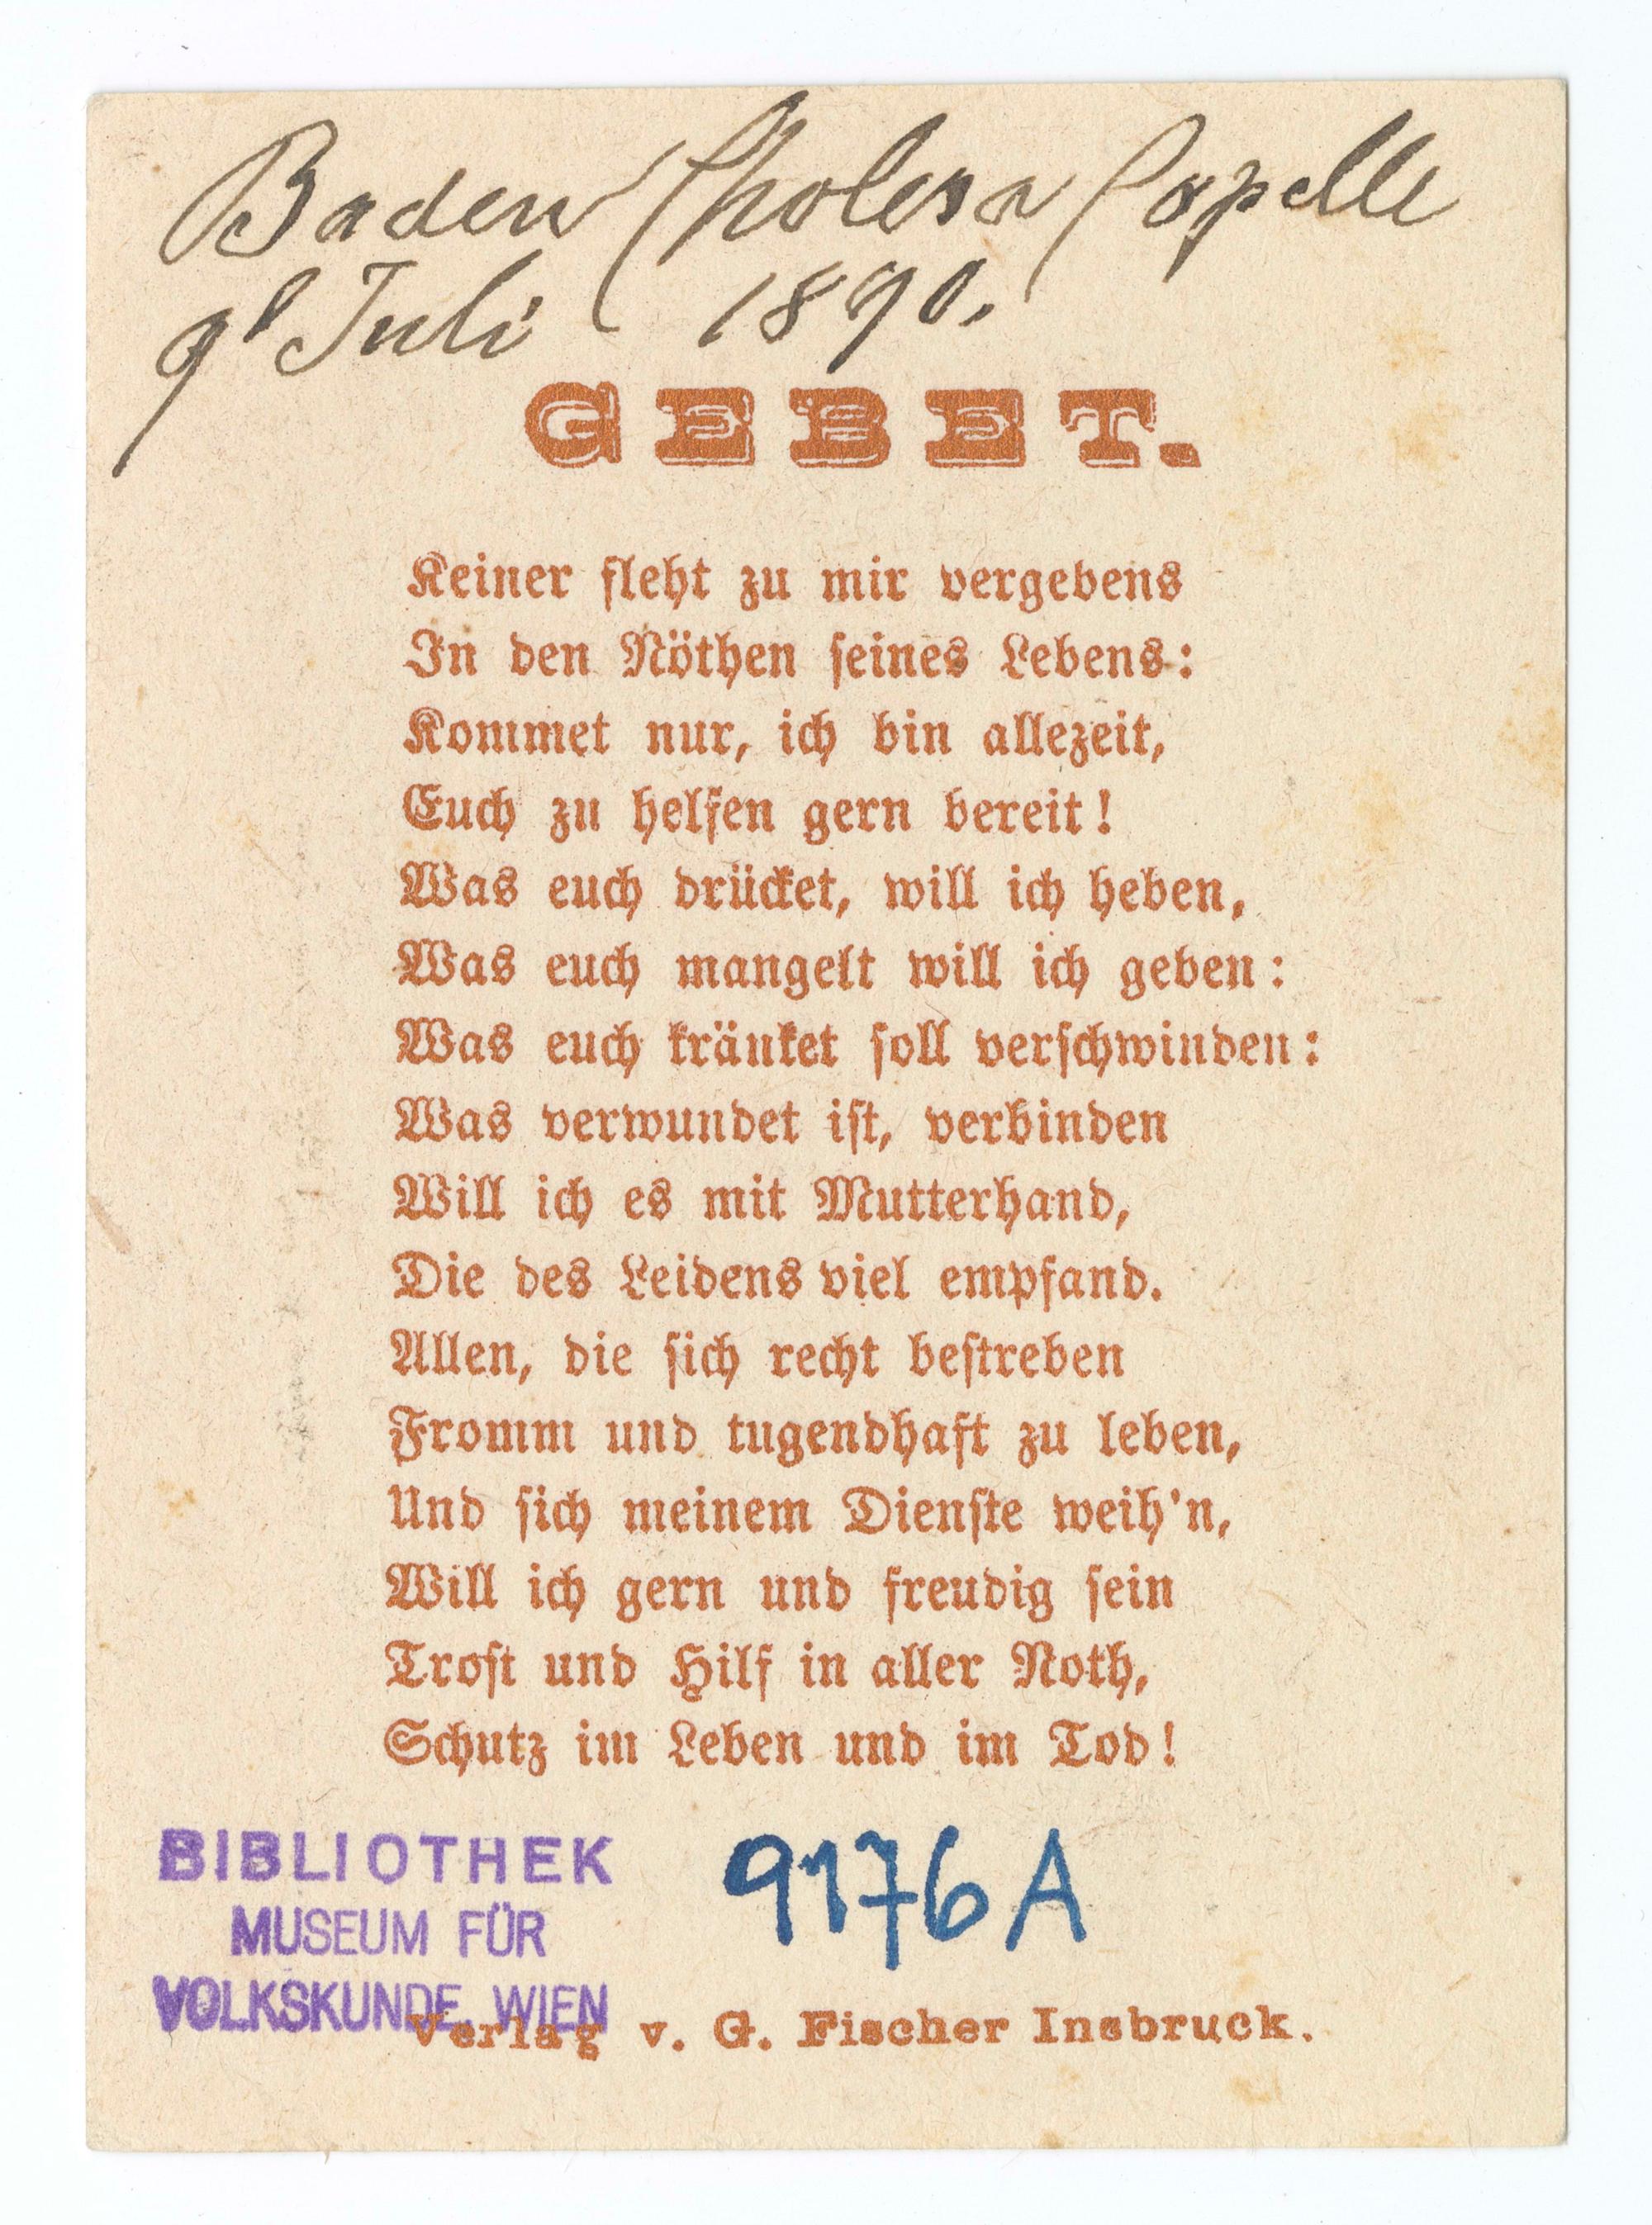 Baden Cholera Capelle
9t Juli 1890.
GEBET.
Keiner fleht zu mir vergebens
In den Nöthen seines Lebens:
Kommet nur, ich bin allezeit,
Euch zu helfen gern bereit!
Was euch drücket, will ich heben,
Was euch mangelt will ich geben:
Was euch kränket soll verschwinden:
Was verwundet ist, verbinden
Will ich es mit Mutterhand,
Die des Leidens viel empfand.
Allen, die sich recht bestreben
Fromm und tugendhaft zu leben,
Und sich meinem Dienste weih'n,
Will ich gern und freudig sein
Trost und Hilf in aller Noth,
Schutz im Leben und im Tod!
BIBLIOTHEK
MUSEUM FÜR
VOLKSKUNDE WIEN
9176 A
Verlag v. G. Fischer Insbruck.